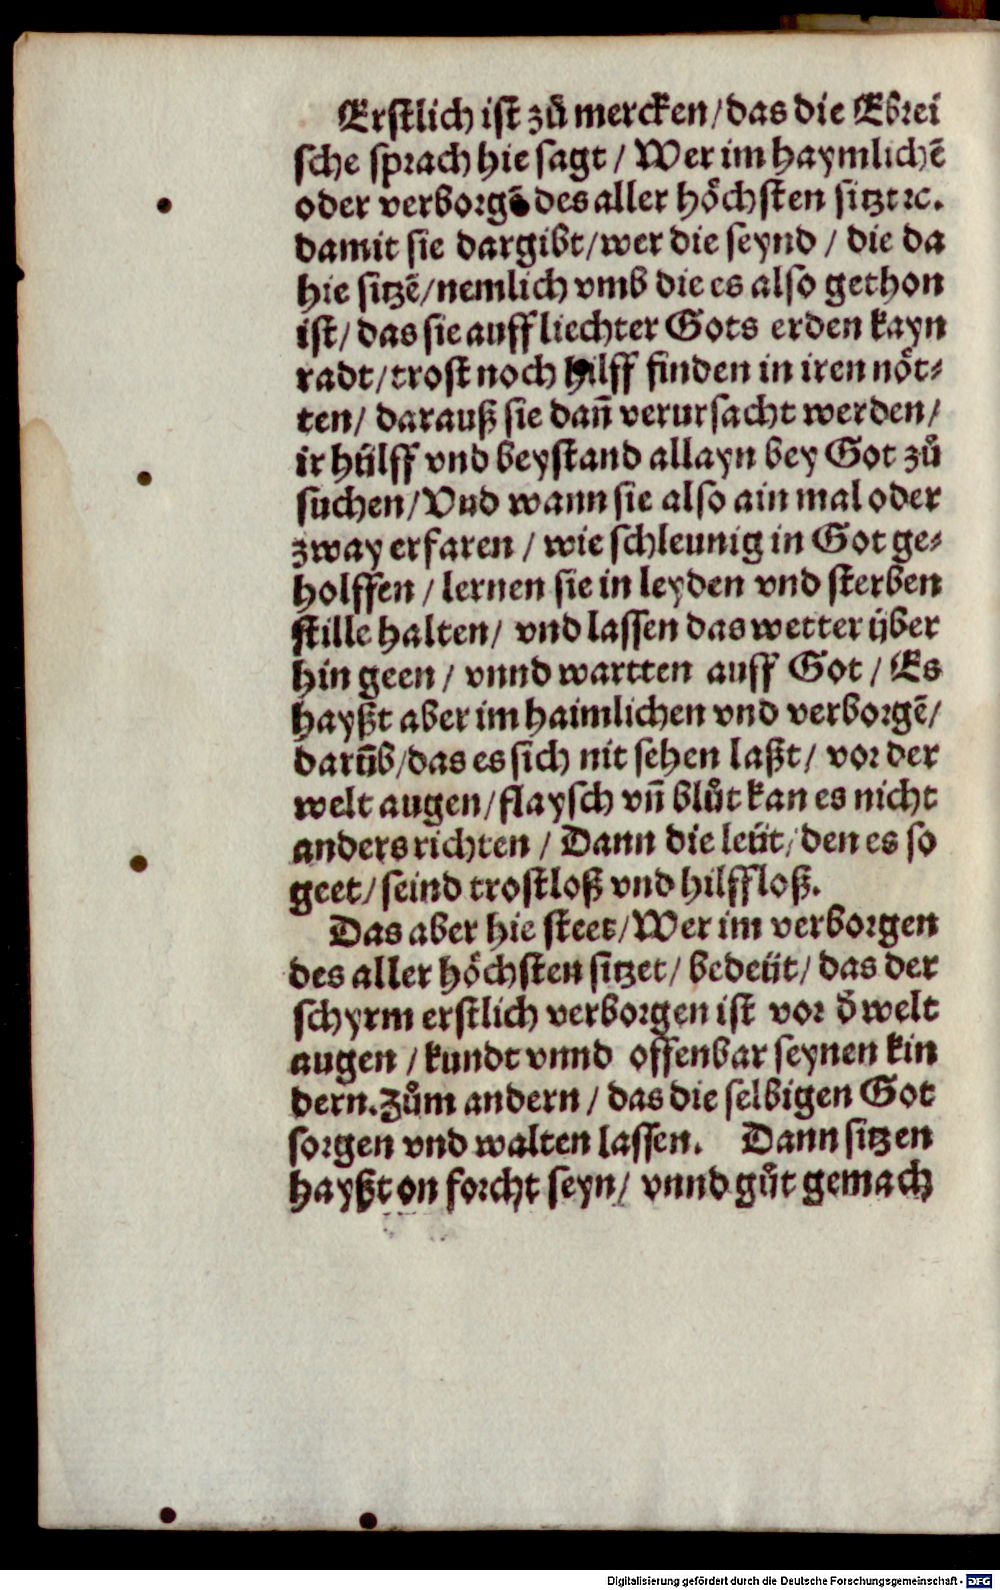 Erstlich ist zů mercken / das die Ebrei
sche sprach hie sagt / Wer im haymlichē
oder verborgē des aller höchsten sitzt ꝛc.
damit sie dargibt / wer die seynd / die da
hie sitzē / nemlich vmb die es also gethon
ist / das sie auff liechter Gots erden kayn
radt / trost noch hilff finden in iren nöt⸗
ten / darauß sie dañ verursacht werden /
ir hülff vnd beystand allayn bey Got zů
suchen / Vnd wann sie also ain mal oder
zway erfaren / wie schleunig in Got ge⸗
holffen / lernen sie in leyden vnd sterben
stille halten / vnd lassen das wetter über
hin geen / vnnd wartten auff Got / Es
hayßt aber im haimlichen vnd verborgē /
darūb / das es sich nit sehen laßt / vor der
welt augen / flaysch vñ blůt kan es nicht
anders richten / Dann die leüt / den es so
geet / seind trostloß vnd hilffloß.
Das aber hie steet / Wer im verborgen
des aller höchsten sitzet / bedeüt / das der
schyrm erstlich verborgen ist vor ð welt
augen / kundt vnnd offenbar seynen kin
dern. Zům andern / das die selbigen Got
sorgen vnd walten lassen. Dann sitzen
hayßt on forcht seyn / vnnd gůt gemach
Digitalisierung gefördert durch die Deutsche Forschungsgemeinschaft - DFG